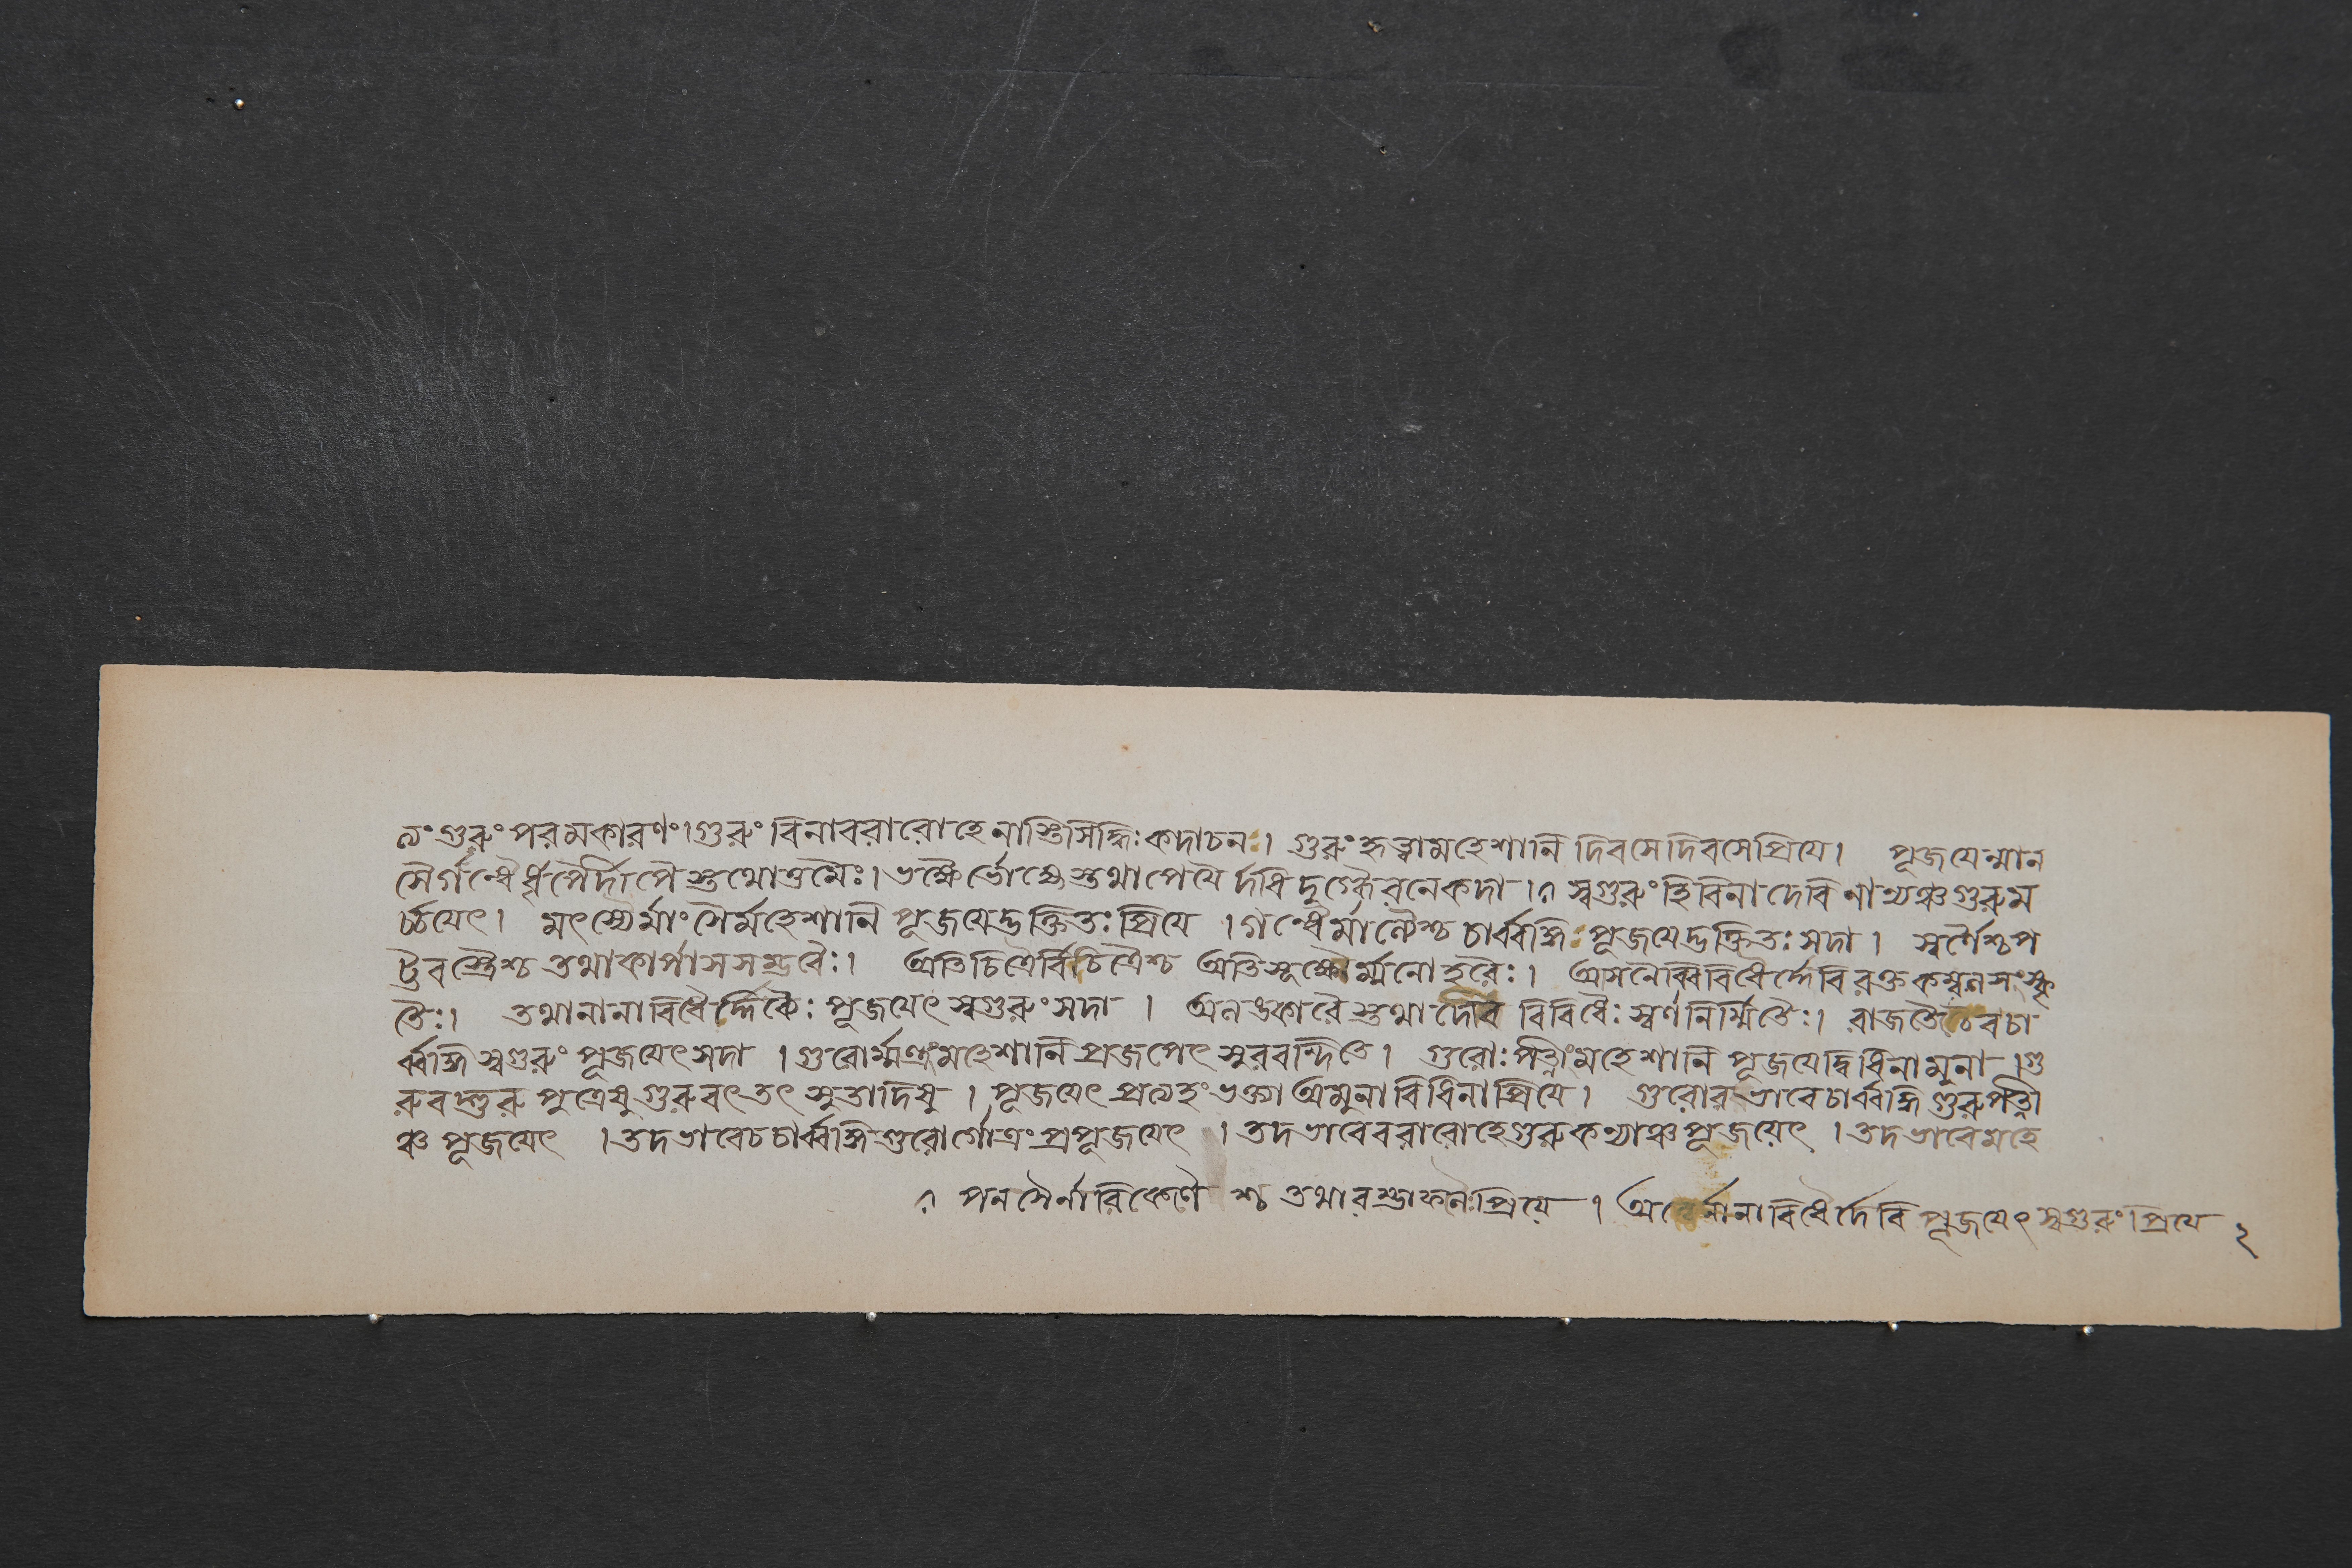 ত্যং গুরুং পরমকারণং। গুরুং বিনা বরারোহে নাস্তি সিদ্ধিঃ কদাচনঃ। গুরুং হৃত্বা মহেশানি দিবসে দিবসে প্রিযে। পূজযেন্মান
সৈর্গন্ধৈর্ধূপৈর্দীপৈস্তথোত্তমৈঃ। ভক্ষ্যৈর্ভোজ্যৈস্তথা পেযৈর্দধিদুগ্ধৈরনেকদা। স্বগুরুং হি বিনা দেবি নান্যঞ্চ গুরুম
র্চ্চযেৎ। মৎস্যৈর্মাংসৈর্মহেশানি পূজযেদ্ভক্তিতঃ প্রিযে। গন্ধৈর্মাল্যৈশ্চ চার্ব্বঙ্গিঃ পূজযেদ্ভক্তিতঃ সদা। স্বর্ণৈশ্চ প
ট্টবস্ত্রৈশ্চ তথা কার্পাসসম্ভবৈঃ। অতিচিত্রৈর্বিচিত্রৈশ্চ অতিসূক্ষ্মৈর্ম্মনোহরৈঃ। আসনৈর্ব্বিবিধৈর্দ্দেবি রক্তকম্বলসংস্কৃ
তৈঃ। তথা নানাবিধৈর্দ্দিব্যৈঃ পূজযেৎ স্বগুরুং সদা। অলঙ্কারৈস্তথা দেবি বিবিধৈঃ স্বর্ণনির্ম্মিতৈঃ। রাজতৈশ্চৈব চা
র্ব্বঙ্গি স্বগুরুং পূজযেৎ সদা। গুরোর্ম্মন্ত্রং মহেশানি প্রজপেৎ সুরবন্দিতে। গুরোঃ পত্নীং মহেশানি পূজযেদ্বিধিনামুনা। গু
রুবদ্গুরুপুত্রেষু গুরুবৎ তৎসুতাদিষু। পূজযেৎ প্রত্যহং ভক্ত্যা অমুনা বিধিনা প্রিযে। গুরোরভাবে চার্ব্বঙ্গি গুরুপত্নী
ঞ্চ পূজযেৎ। তদভাবে চ চার্ব্বঙ্গি গুরোর্গোত্রং প্রপূজযেৎ। তদভাবে বরারোহে গুরুকন্যাঞ্চ পূজয়েৎ। তদভাবে মহে
পনসৈর্নারিকেলৈশ্চ তথা রম্ভাফলৈঃ প্রিয়ে। র্নানাবিধৈর্দেবি পূজযেৎ স্বগুরুং প্রিযে ২